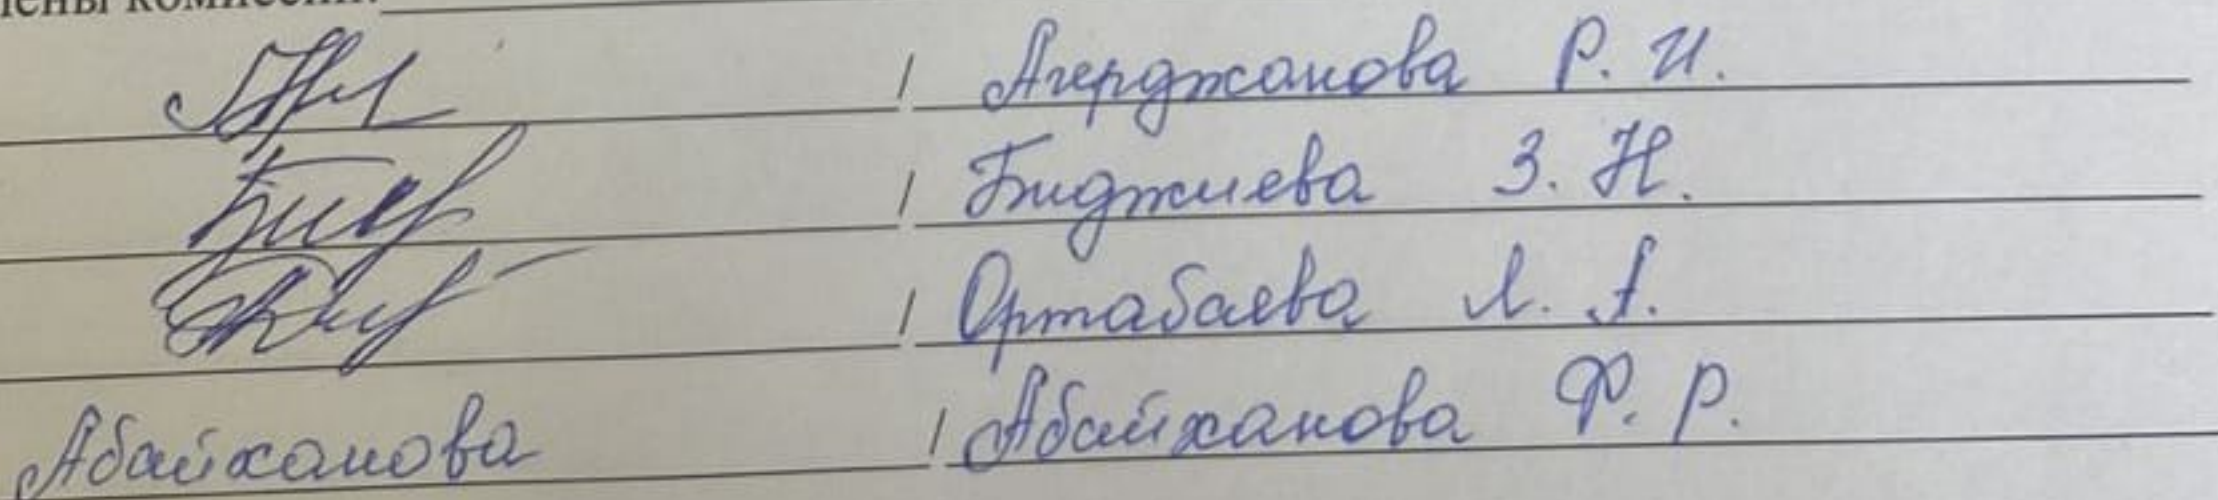 члены комиссии:
/ Агерджанова Р. И.
/ Биджиева З. Н.
/ Ортабаева Л. А.
Абайханова / Абайханова Ф. Р.